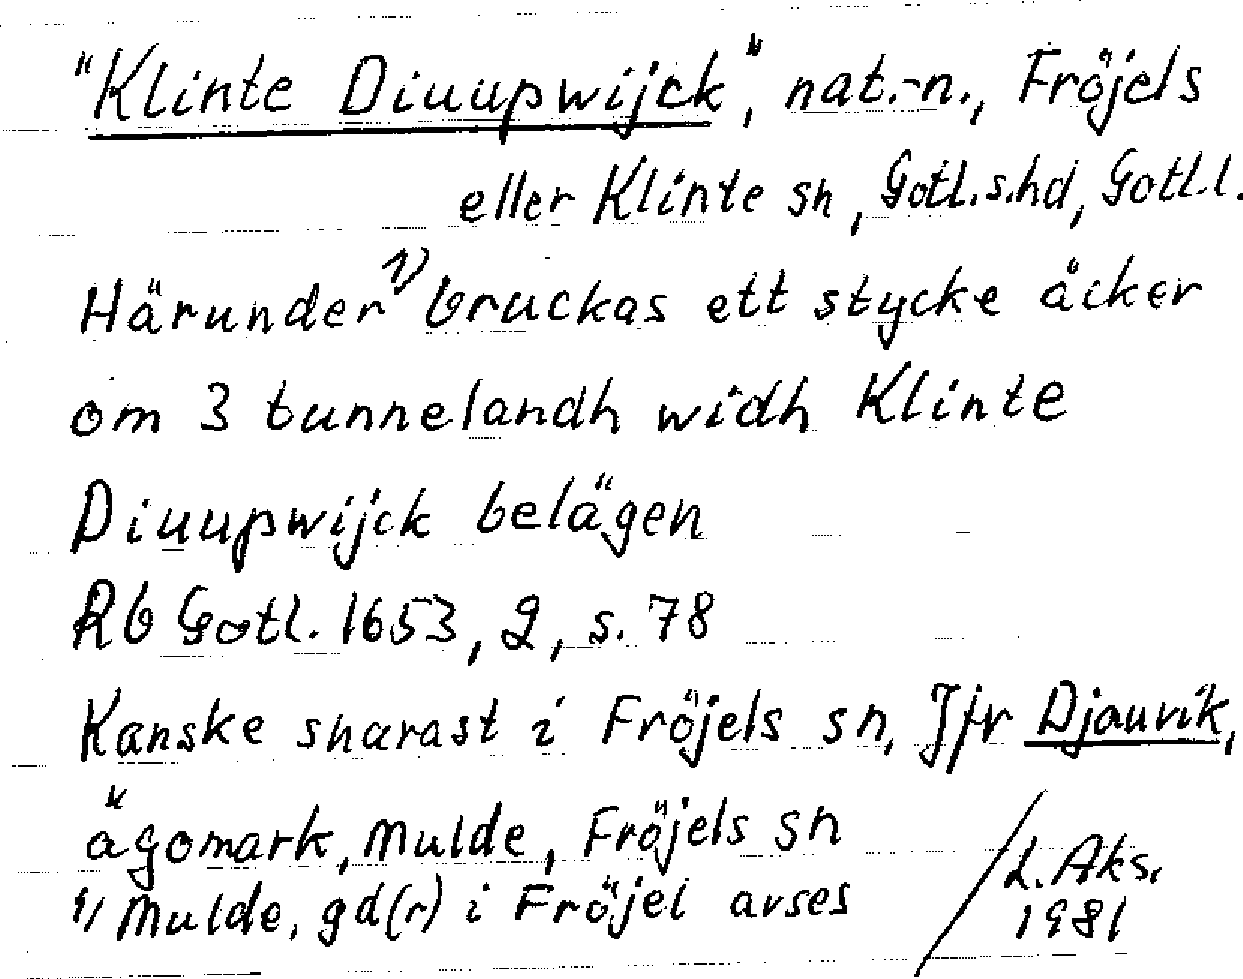 "Klinte Diuupwijck", nat.-n., Fröjels
eller Klinte sn, Gotl.s.hd, Gotl.l.
Härunder 1) bruckas ett stycke åcker
om 3 tunnelandh widh Klinte
Diuupwijck belägen
Rb Gotl. 1653, 2, s. 78
Kanske snarast i Fröjels sn, Jfr Djauvik,
ägomark, Mulde, Fröjels sn
1/ Mulde, gd(r) i Fröjel avses
/L. Aks.
1981